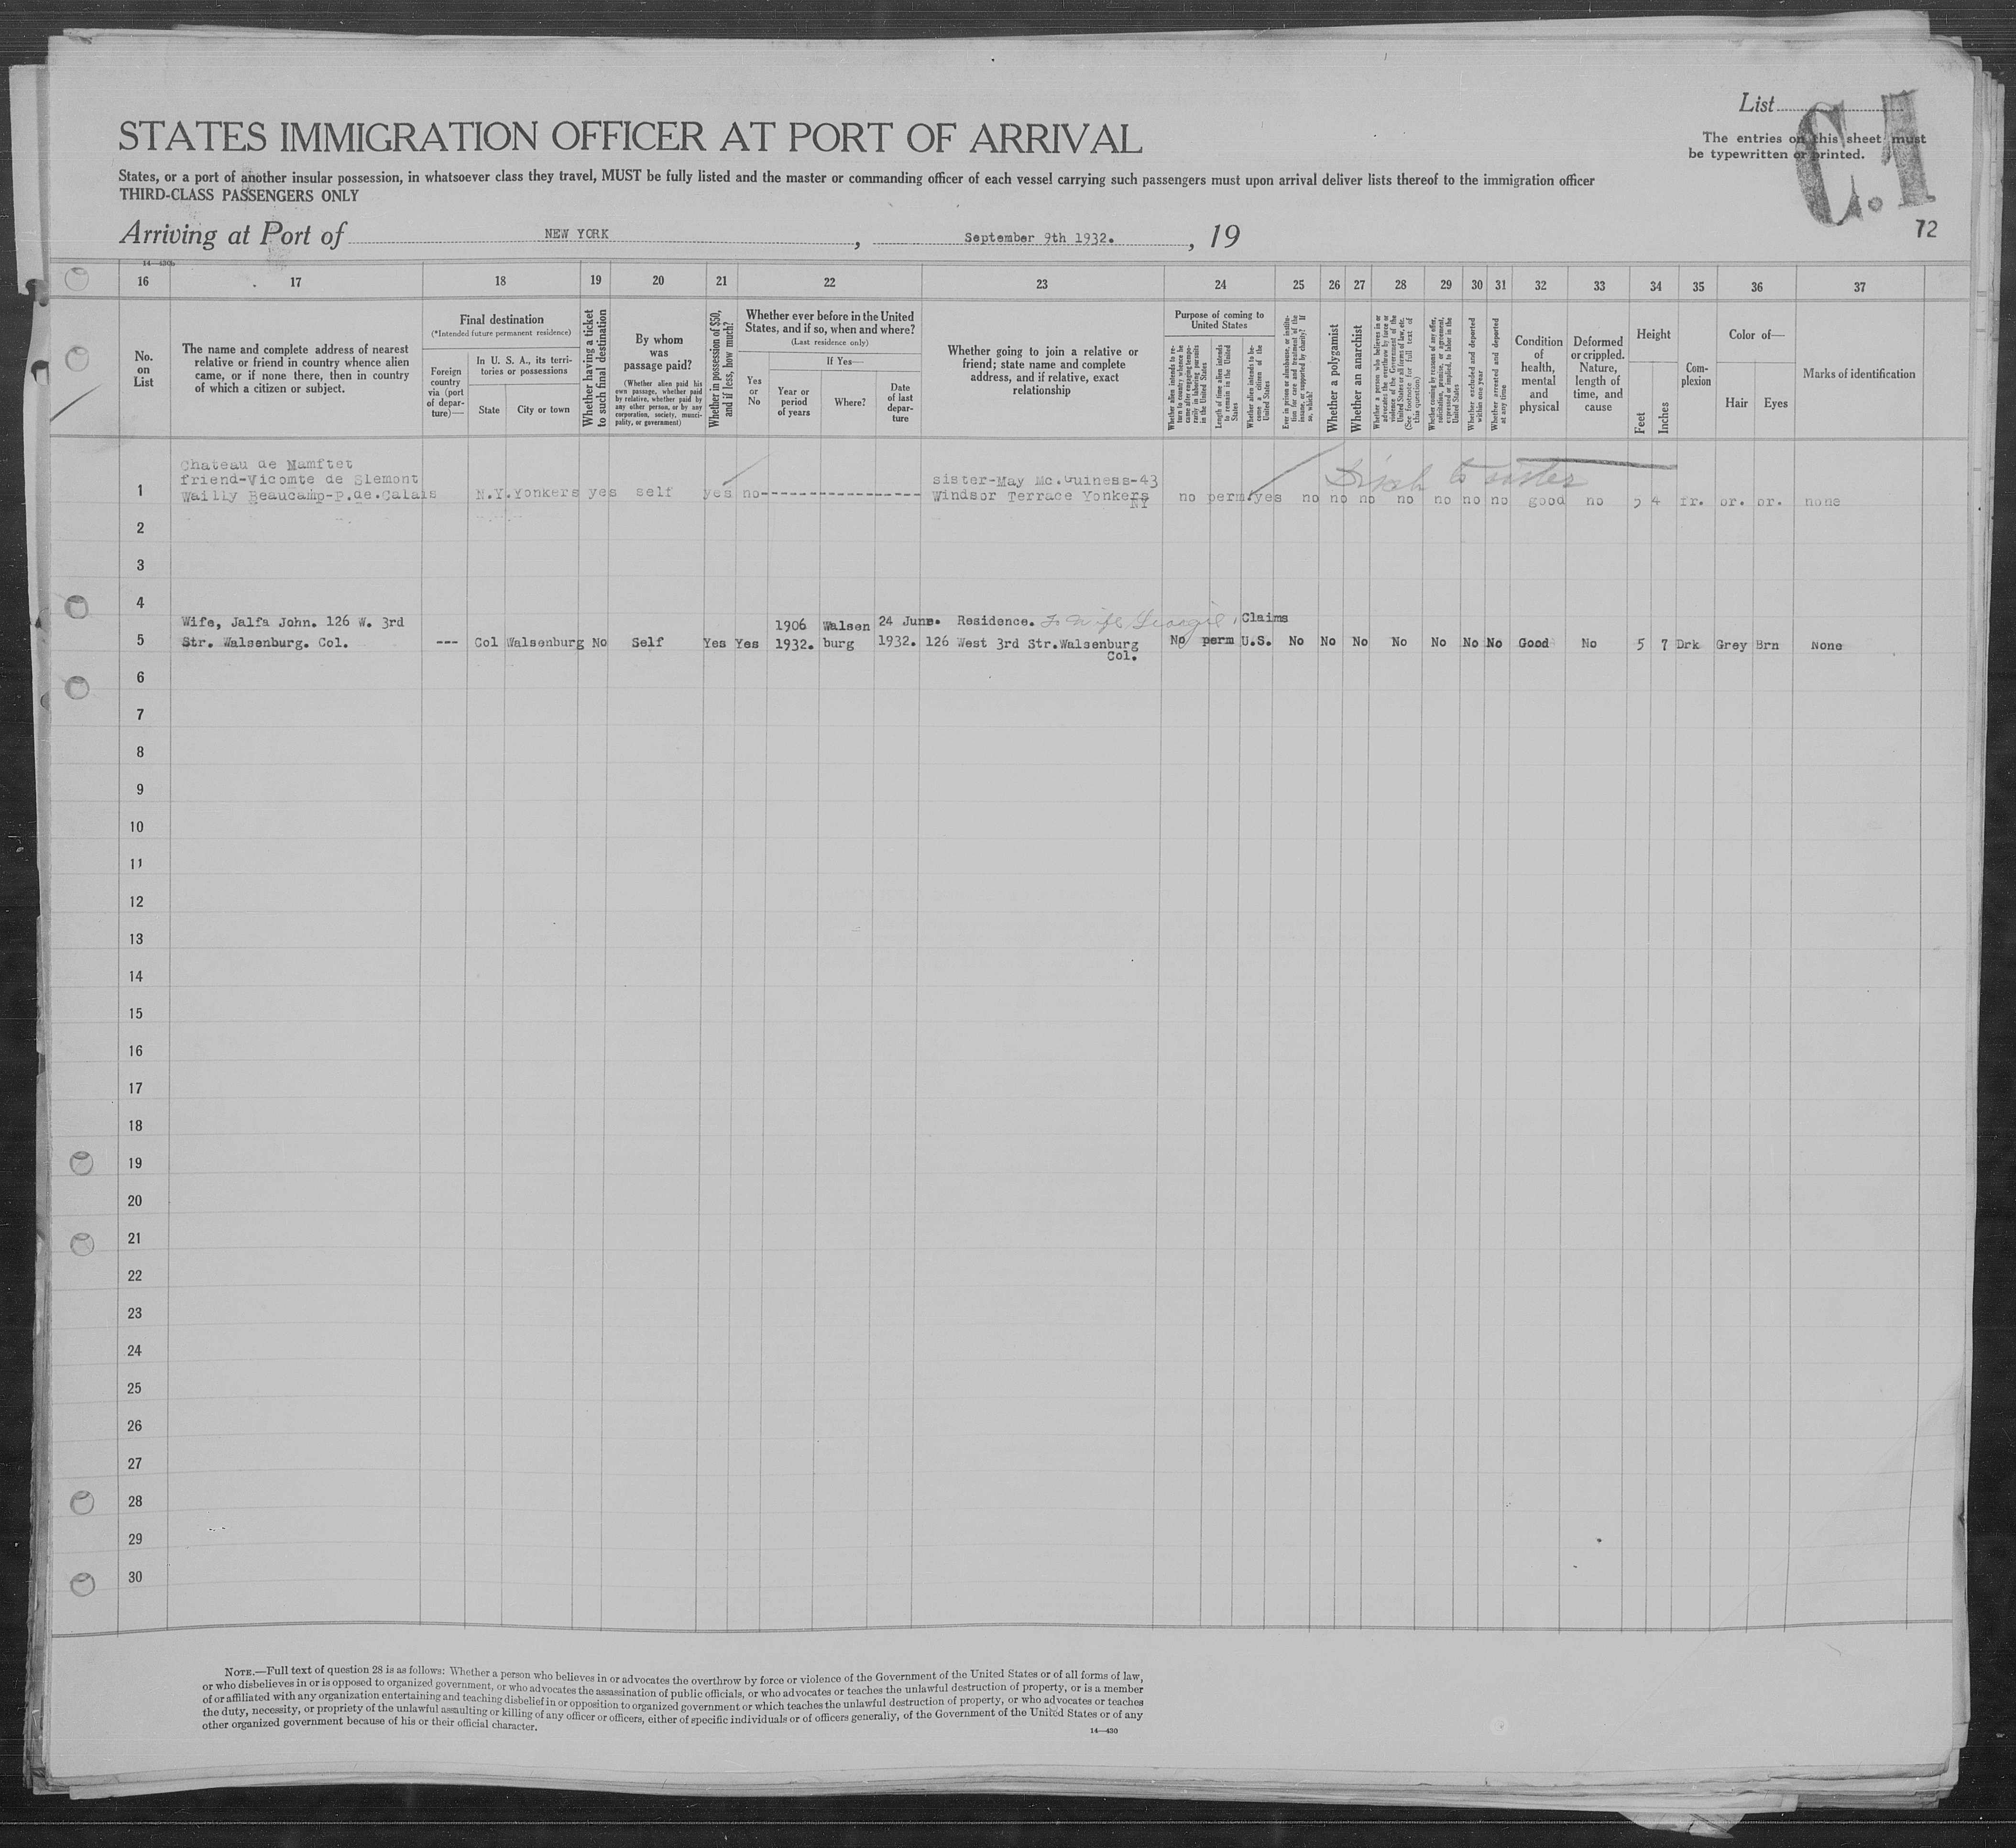 List
C.1
The entries on this sheet must
be typewritten or printed.
STATES IMMIGRATION OFFICER AT PORT OF ARRIVAL
States, or a port of another insular possession, in whatsoever class they travel, MUST be fully listed and the master or commanding officer of each vessel carrying such passengers must upon arrival deliver lists thereof to the immigration officer
THIRD-CLASS PASSENGERS ONLY
72
Arriving at Port of NEW YORK , September 9th 1932. , 19
14—430b
16 17 18 19 20 21 22 23 24 25 26 27 28 29 30 31 32 33 34 35 36 37
No.
on
List
The name and complete address of nearest
relative or friend in country whence alien
came, or if none there, then in country
of which a citizen or subject.
Final destination
(*Intended future permanent residence)
Foreign
country
via (port
of depar-
ture)—
In U. S. A., its terri-
tories or possessions
State
City or town
Whether having a ticket
to such final destination
By whom
was
passage paid?
(Whether alien paid his
own passage, whether paid
by relative, whether paid by
any other person, or by any
corporation, society, munici-
pality, or government)
Whether in possession of $50,
and if less, how much?
Whether ever before in the United
States, and if so, when and where?
(Last residence only)
Yes
or
No
If Yes—
Year or
period
of years
Where?
Date
of last
depar-
ture
Whether going to join a relative or
friend; state name and complete
address, and if relative, exact
relationship
Purpose of coming to
United States
Whether alien intends to re-
turn to country whence he
came after engaging tempo-
rarily in laboring pursuits
in the United States
Length of time alien intends
to remain in the United
States
Whether alien intends to be-
come a citizen of the
United States
Ever in prison or almshouse, or institu-
tion for care and treatment of the
insane, or supported by charity? If
so, which?
Whether a polygamist
Whether an anarchist
Whether a person who believes in or
advocates the overthrow by force or
violence of the Government of the
United States or all forms of law, etc.
(See footnote for full text of
this question)
Whether coming by reasons of any offer,
solicitation, promise, or agreement,
expressed or implied, to labor in the
United States
Whether excluded and deported
within one year
Whether arrested and deported
at any time
Condition
of
health,
mental
and
physical
Deformed
or crippled.
Nature,
length of
time, and
cause
Height
Feet
Inches
Com-
plexion
Color of—
Hair
Eyes
Marks of identification
Chateau de
friend-Vicomte de Slemont
sister-May Mc.Guiness-43
to sister
1 Wailly Beaucamp-P.de.Calais N.Y. Yonkers yes self yes no---------------- Windsor Terrace Yonkers no perm. yes no no no no no no no good no 5 4 fr. br. br. none
NY
2
3
4
Wife, Jalfa John. 126 W. 3rd 1906 Walsen 24 June. Residence. To wife Claims
5 Str. Walsenburg. Col. --- Col Walsenburg No Self Yes Yes 1932. burg 1932. 126 West 3rd Str.Walsenburg No perm U.S. No No No No No No No Good No 5 7 Drk Grey Brn None
Col.
6
7
8
9
10
11
12
13
14
15
16
17
18
19
20
21
22
23
24
25
26
27
28
29
30
NOTE.—Full text of question 28 is as follows: Whether a person who believes in or advocates the overthrow by force or violence of the Government of the United States or of all forms of law,
or who disbelieves in or is opposed to organized government, or who advocates the assassination of public officials, or who advocates or teaches the unlawful destruction of property, or is a member
of or affiliated with any organization entertaining and teaching disbelief in or opposition to organized government or which teaches the unlawful destruction of property, or who advocates or teaches
the duty, necessity, or propriety of the unlawful assaulting or killing of any officer or officers, either of specific individuals or of officers generally, of the Government of the United States or of any
other organized government because of his or their official character.
14—430